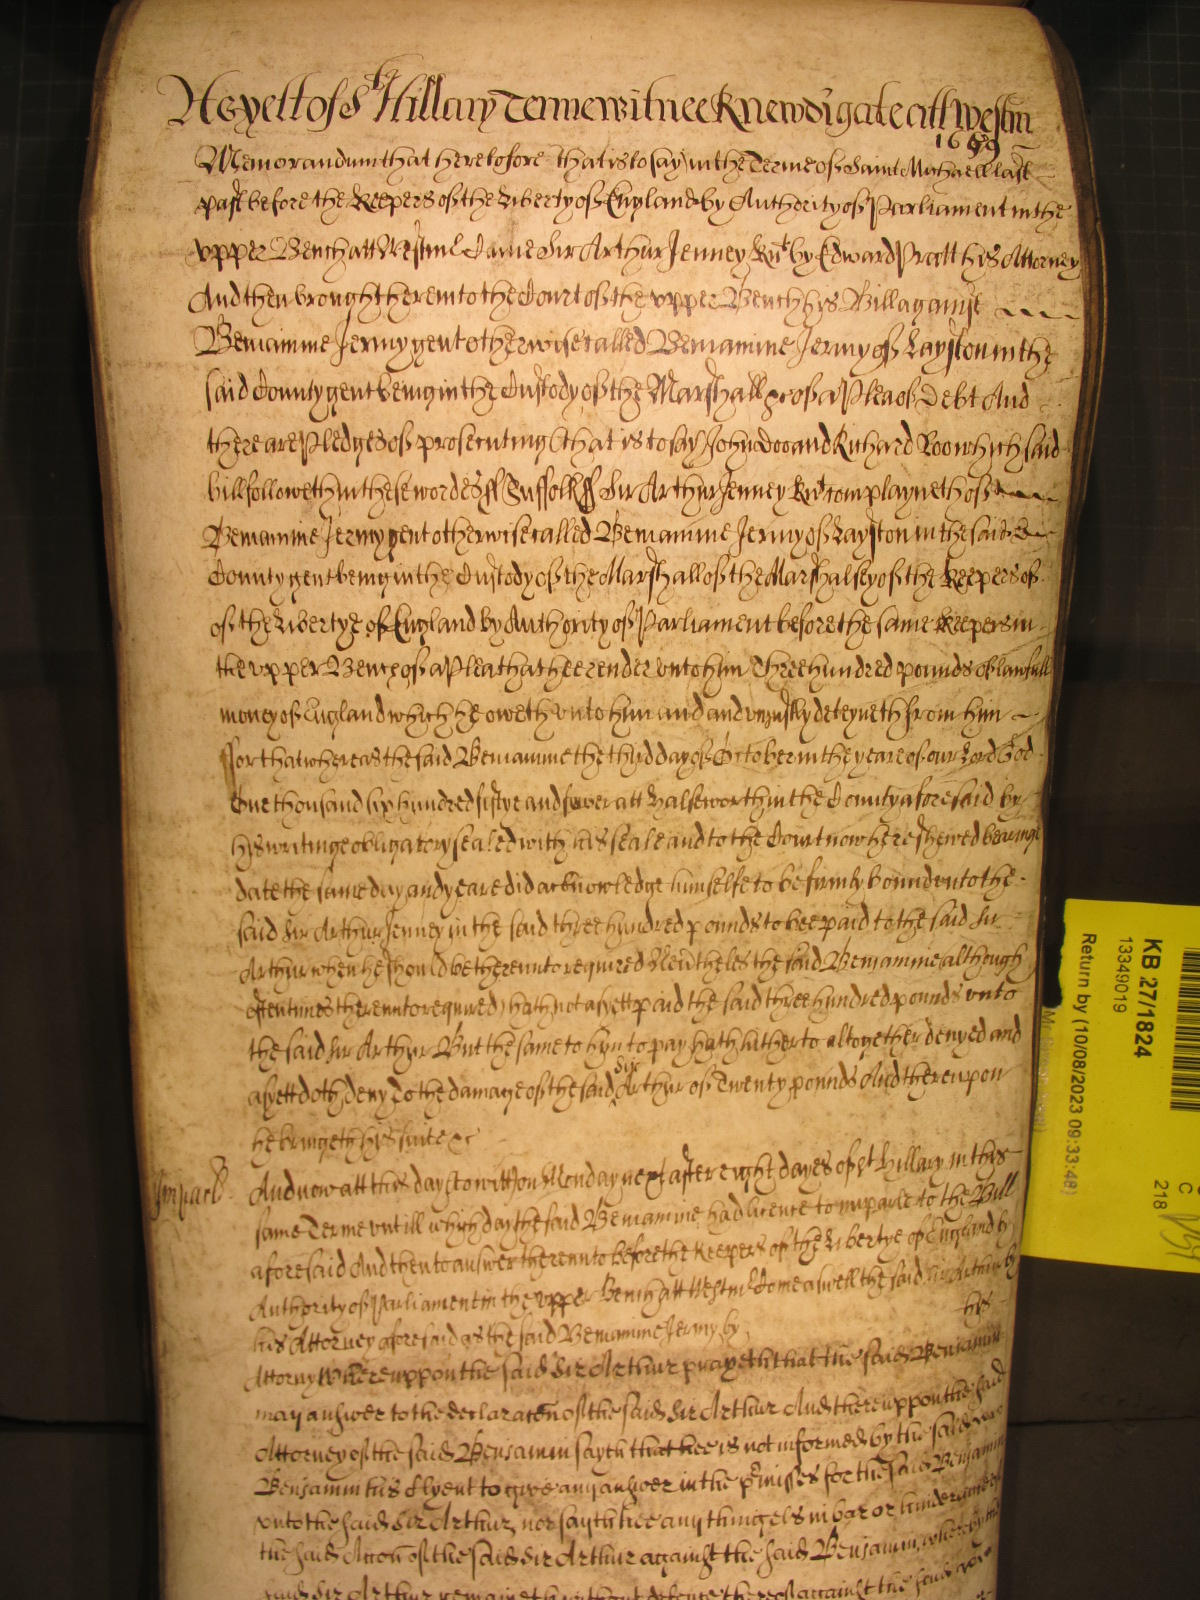 As yett of St Hillary Terme witnes R Newdigate att Westm
1659
Memorandum that heretofore that is to say in the Terme of Saint Michaell last
past before the Keepers of the Liberty of England by Authority of Parliament in the
vpper Bench att Westml Came Sir Arthur Jenney Knt by Edward Pratt his Attorney
And then brought here into the Court of the vpper Bench his Bill against
Beniamine Jermy gent otherwise called Beniamine Jermy of Layston in the
said County gent being in the Custody of the Marshall &c of a Plea of Debt And
there are Pledges of prosecuting (that is to say) John Doo and Richard Roo which said
bill followeth in these wordes ss Suffolk ss Sir Arthur Jenney Knt complayneth of
Beniamine Jermy gent otherwise called Beniamine Jermy of Layston in the said
County gent being in the Custody of the Marshall of the Marshalsey of the Keepers of
of the Libertye of England by Authority of Parliament before the same Keepers in
the vpper Bench of a Plea that hee render vnto him Three hundred pounds of lawfull
money of England which he oweth vnto him and and vniustly deteyneth from him
ffor that whereas the said Beniamine the third day of October in the yeare of our Lord God
One thousand six hundred fiftye and fower att Halseworth in the County aforesaid by
his writinge obligatory sealed with his seale and to the Court now here shewed bearinge
date the same day and yeare did acknowledge himselfe to be firmly bound vnto the
said Sir Arthur Jenney in the said three hundred pounds to bee paid to the said Sir
Arthur when he should be therevnto required Neuertheles the said Beniamine although
oftentimes therevnto required) hath not as yett paid the said three hundred pounds vnto
the said Sir Arthur But the same to hym to pay hath hitherto altogether denyed and
as yett doth deny To the damage of the said Sir Arthur of Twenty pounds And therevpon
he bringeth his suite &c
Imparl
And now att this day (to witt) on Monday next after eight dayes of St Hillary in this
same Terme vntill which day the said Beniamine had licence to imparle to the Bill
aforesaid And then to answer therevnto before the Keepers of the Libertye of England by
Authority of Parliament in the vpper Bench att Westml Come aswell the said Sir Arthur by
his Attorney aforesaid as the said Beniamine Jermy by his
Attorny Wherevppon the said Sir Arthur prayeth that the said Beniamin
may answer to the declaracon of the said Sir Arthur And therevppon the said
Attorney of the said Benjamin sayth that hee is not informed by the said
Benjamin his Clyent to give any answer in the p'misses for the said Benjamin
vnto the said Sir Arthur, nor sayth hee any thinge els in bar or hinderance of
the said Accon of the said Sir Arthur against the said Benjamin, whereby the
said Sir Arthur remaineth without defence thereof against the said